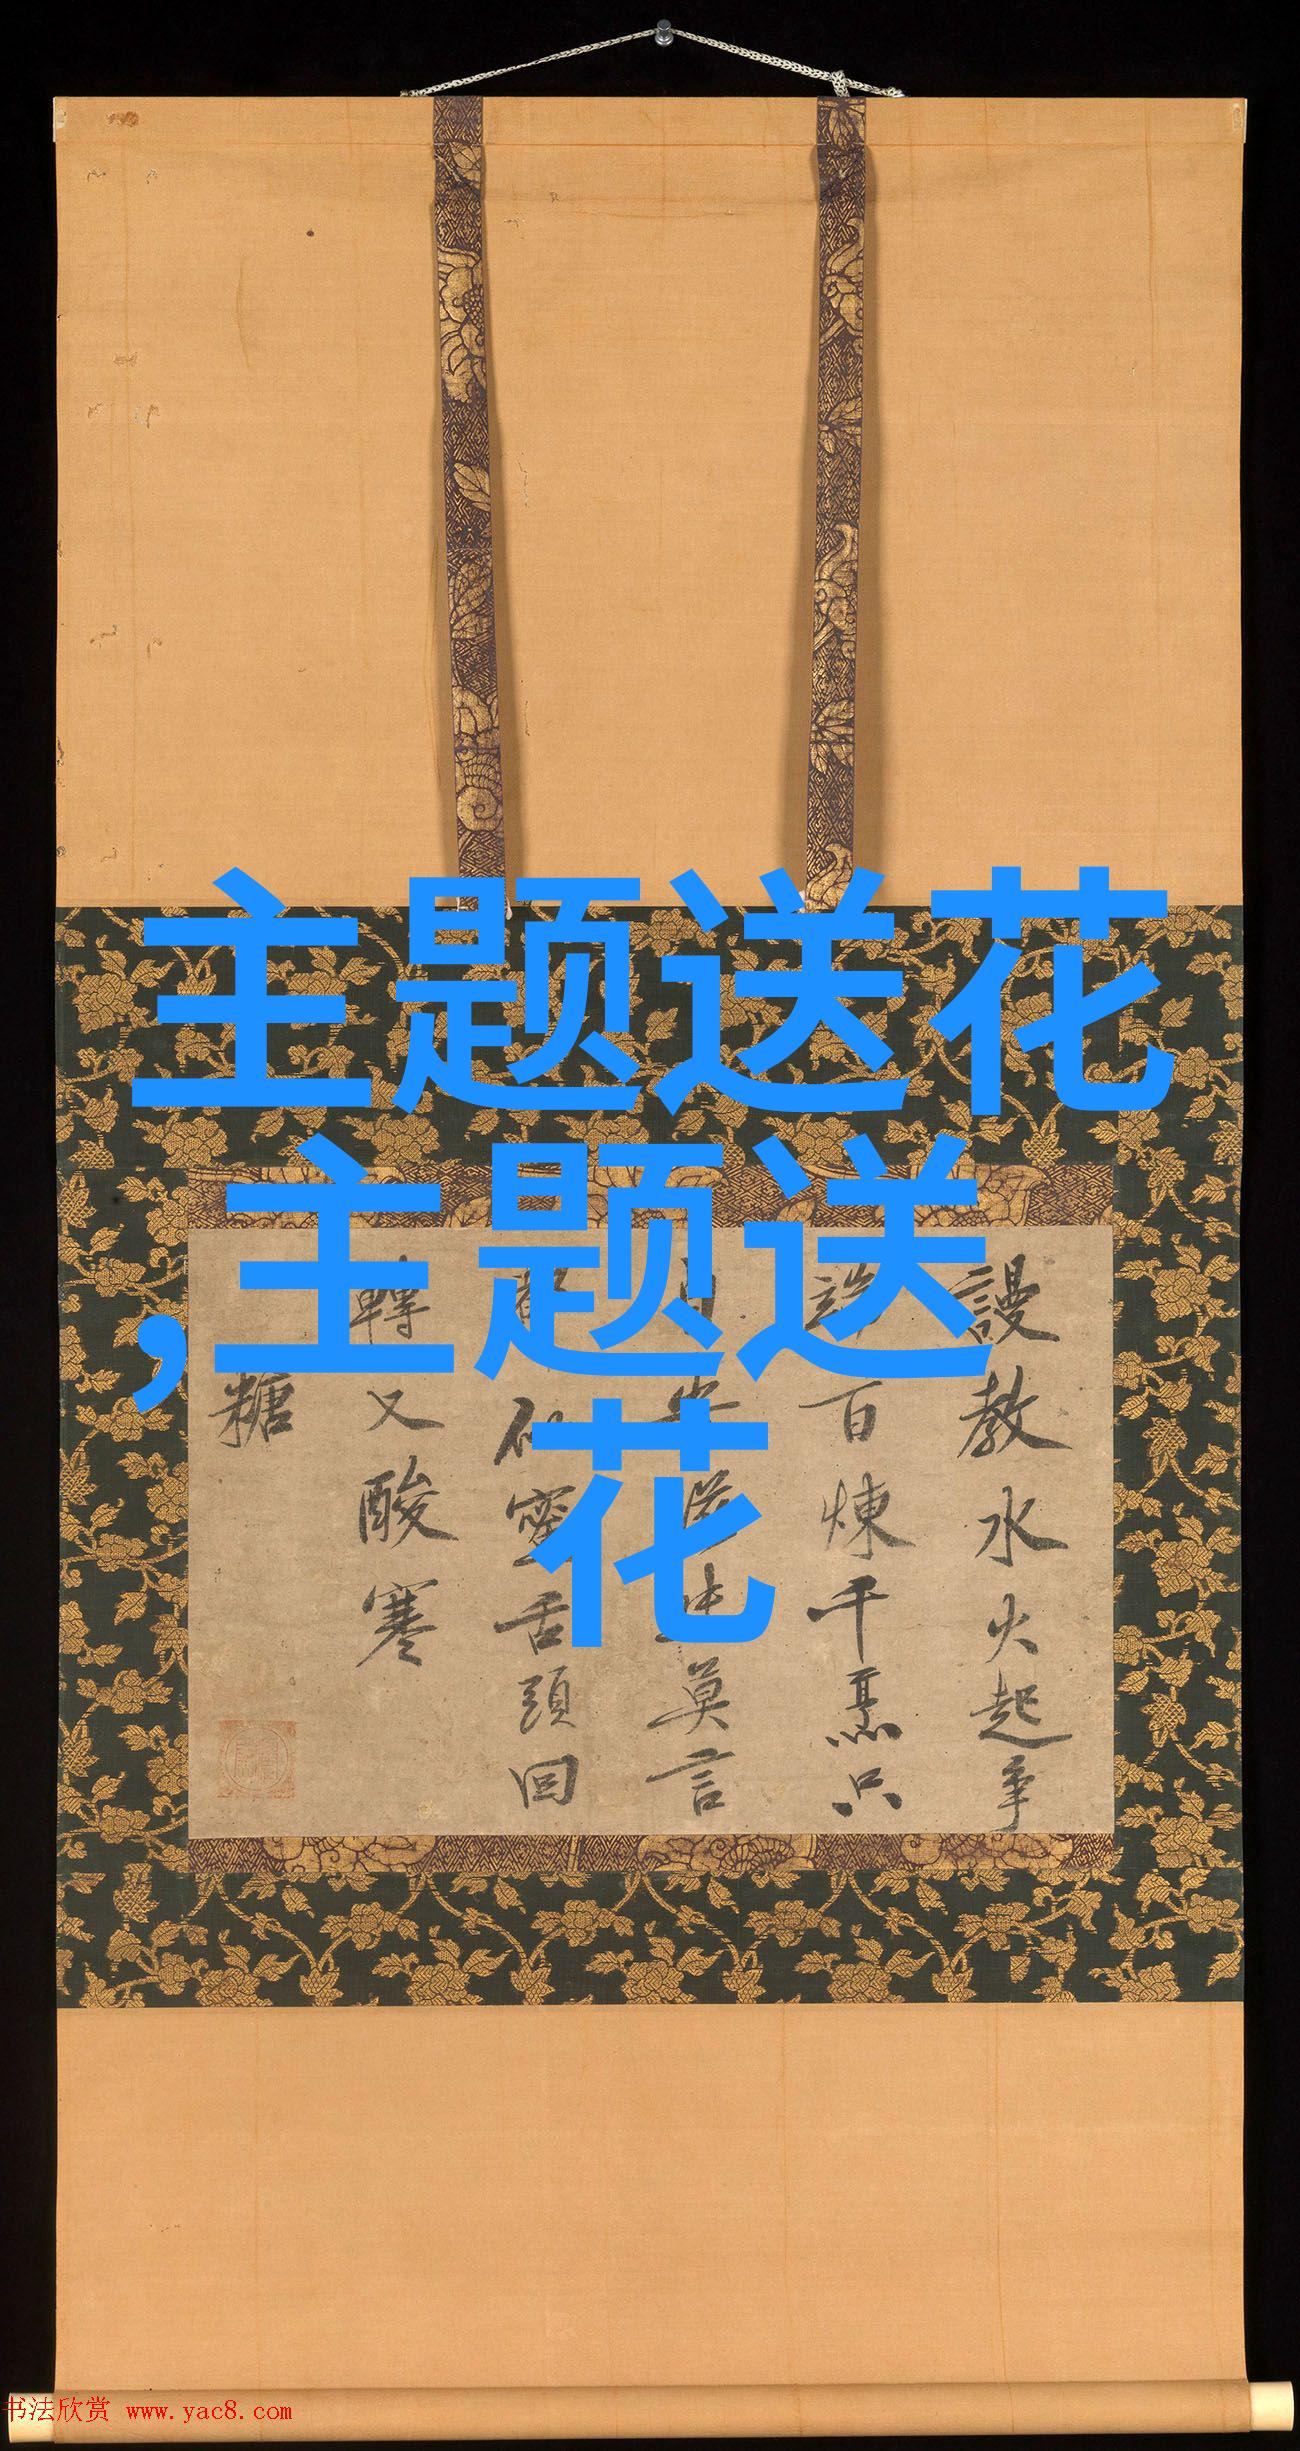 主题送花
,主题送
花
謾教水火起争
百煉千烹只
莫言
舌頭回
轉又酸寒
糖
书法欣赏 www.yac8.com